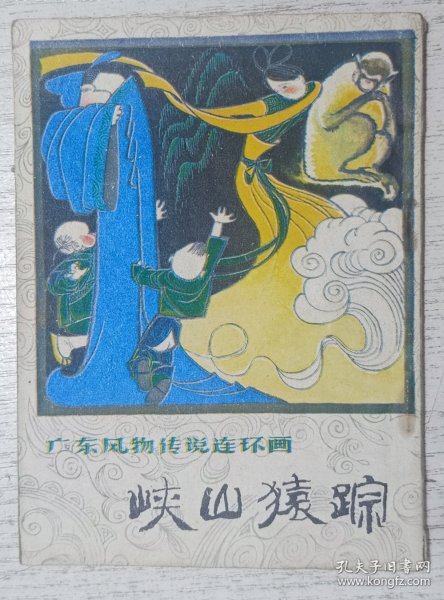 广东风物传说连环画
峡山猿踪
孔夫子旧书网
www.kongfz.com